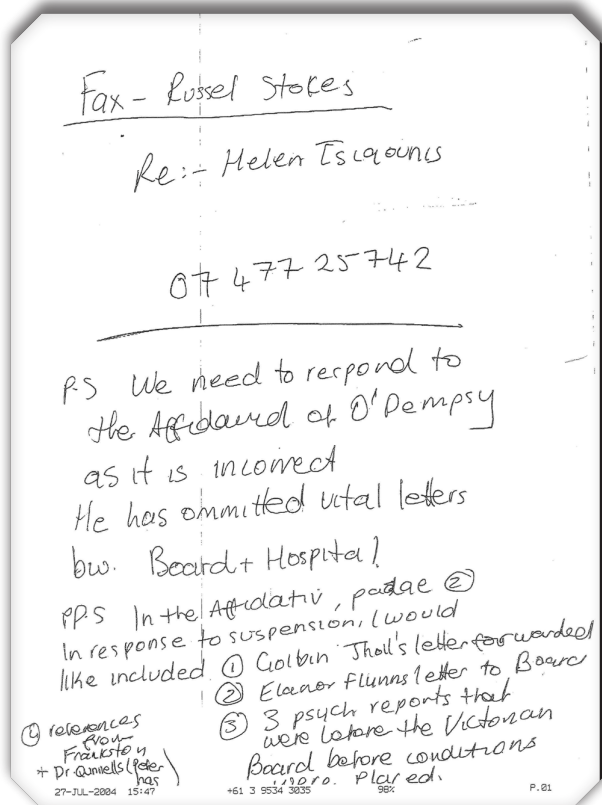 Fax - Russel Stokes
Re:- Helen Tsigounis
07 477 25742
P.S We need to respond to
the Affidavid of O'Dempsy
as it is incorrect
He has ommitted vital letters
bw. Board + Hospital!
PP.S In the Affidativ, padge ②
In response to suspension, I would
like included ① Golbin Tholl's letter forwarded
② Eleanor Flunns letter to Board
③ 3 psych reports that
were before the Victorian
Board before conditions
were placed.
④ references
from
Frankston
+ Dr. Qunnells (Peter
has)
27-JUL-2004 15:47 +61 3 9534 3035 98% P.01